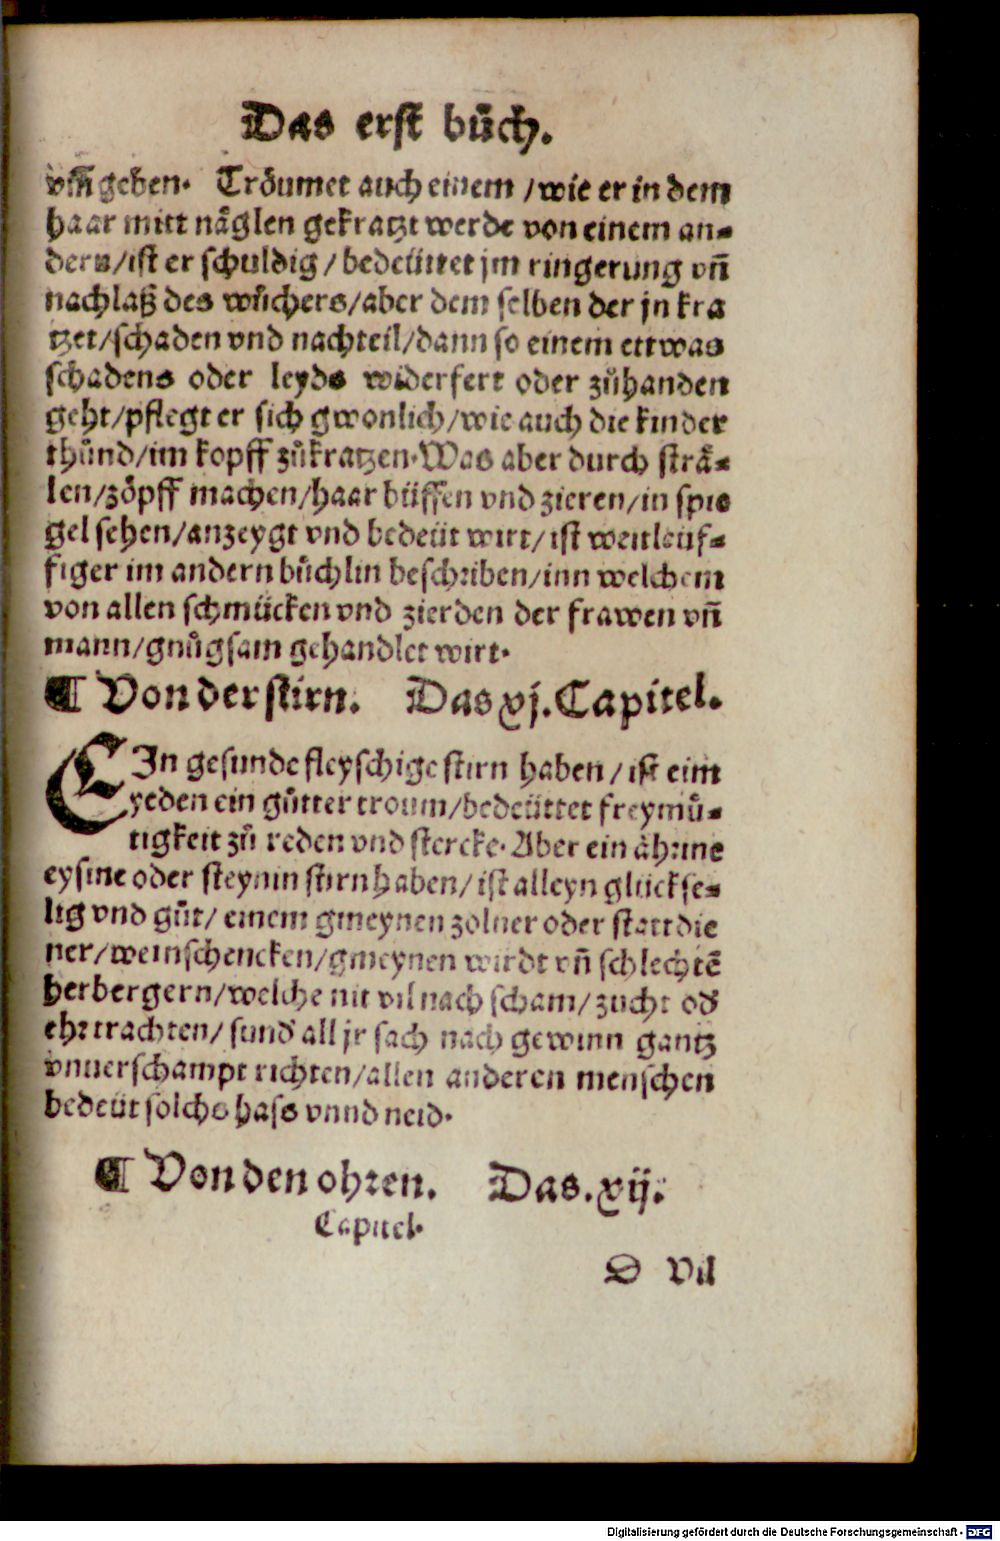 Das erst bůch.
vm̃ geben. Tröumet auch einem / wie er in dem
haar mitt näglen gekratzt werde von einem an⸗
dern/ist er schuldig / bedeüttet jm ringerung vñ
nachlaß des wůchers/aber dem selben der jn kra
tzet/schaden vnd nachteil/dann so einem ettwas
schadens oder leyds widerfert oder zůhanden
geht/pflegt er sich gwonlich/wie auch die kinder
thůnd/im kopff zůkratzen. Was aber durch strä⸗
len/zöpff machen/haar büffen vnd zieren/in spie
gel sehen/anzeygt vnd bedeüt wirt/ist weitleüf⸗
figer im andern bůchlin beschriben/inn welchem
von allen schmücken vnd zierden der frawen vñ
mann/gnůgsam gehandlet wirt.
¶ Von der stirn. Das xj. Capitel.
EIn gesunde fleyschige stirn haben / ist eim
yeden ein gůtter troum/bedeüttet freymů⸗
tigkeit zů reden vnd stercke. Aber ein ährine
eysine oder steynin stirn haben/ ist alleyn glückse⸗
lig vnd gůt/ einem gmeynen zolner oder statt die
ner/weinschencken/gmeynen wirdt vñ schlechtē
herbergern/welche nit vil nach scham/ zucht od̕
ehr trachten/ sund̕ all jr sach nach gewinn gantz
vnuerschampt richten/allen anderen menschen
bedeüt solchs hass vnnd neid.
¶ Von den ohren. Das. xij.
Capitel.
D Vil
Digitalisierung gefördert durch die Deutsche Forschungsgemeinschaft - DFG